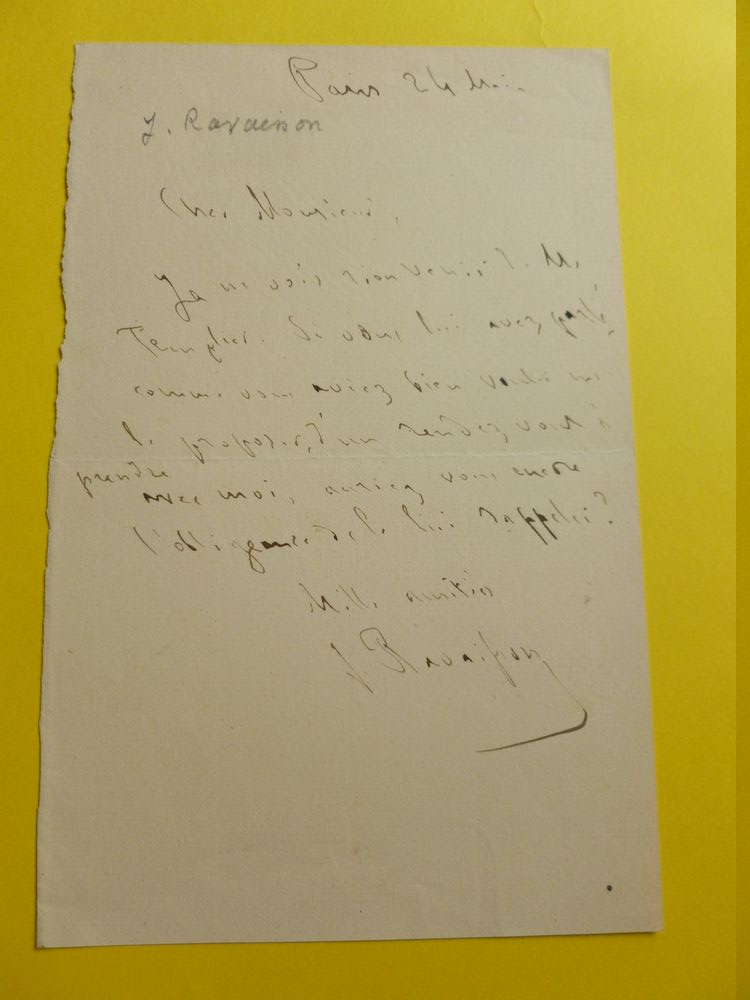 Paris 24 Mai
J. Ravaisson
Cher Monsieur,
Je ne vois rien venir d. M.
Templier. Si vous lui avez parlé,
comme vous aviez bien voulu me
le proposer, d'un rendez vous à
prendre
avec moi, auriez vous encore
l'obligeance de le lui rappeler?
Mille amitiés
J. Ravaisson